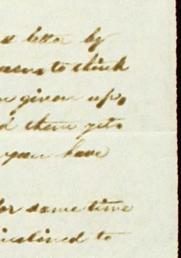 a letter by
to think
given up,
d them yet
you have
for some time
inclined to